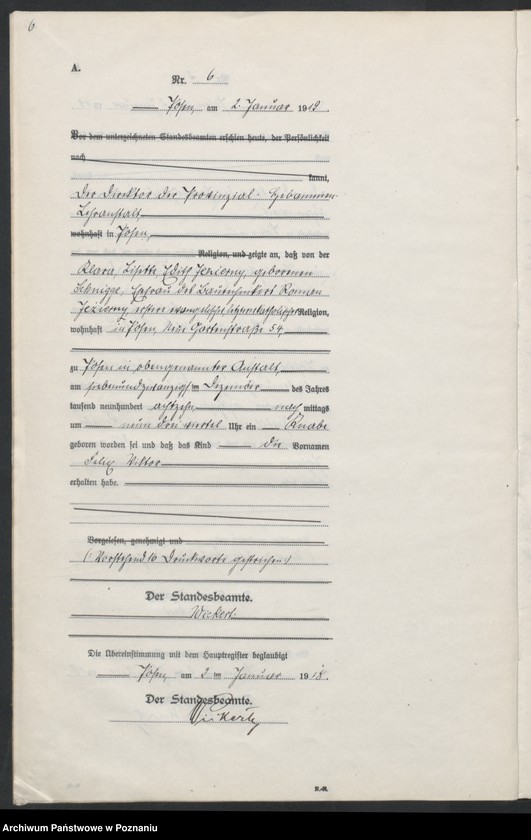 6
A.
Nr. 6
Posen, am 2. Januar 1919
Vor dem unterzeichneten Standesbeamten erschien heute, der Persönlichkeit
nach
kannt,
Der Direktor der Provinzial-Hebammen-
Lehranstalt
wohnhaft in Posen,
Religion, und zeigte an, daß von der
Klara, Lisette Edith Jezierny, geborenen
Ehefrau des Roman
Jezierny, evangelischer katholischer Religion,
wohnhaft in Posen, Neue Gartenstraße 54,
zu Posen in obengenannter Anstalt,
am siebenundzwanzigsten Dezember des Jahres
tausend neunhundert achtzehn nachmittags
um neun drei viertel Uhr ein Knabe
geboren worden sei und daß das Kind die Vornamen
Felix Viktor
erhalten habe.
Vorgelesen, genehmigt und
(Vorstehend 16 Druckworte gestrichen)
Der Standesbeamte.
Wickert.
Die Übereinstimmung mit dem Hauptregister beglaubigt
Posen, am 2 ten Januar 1918.
Der Standesbeamte.
Archiwum Państwowe w Poznaniu